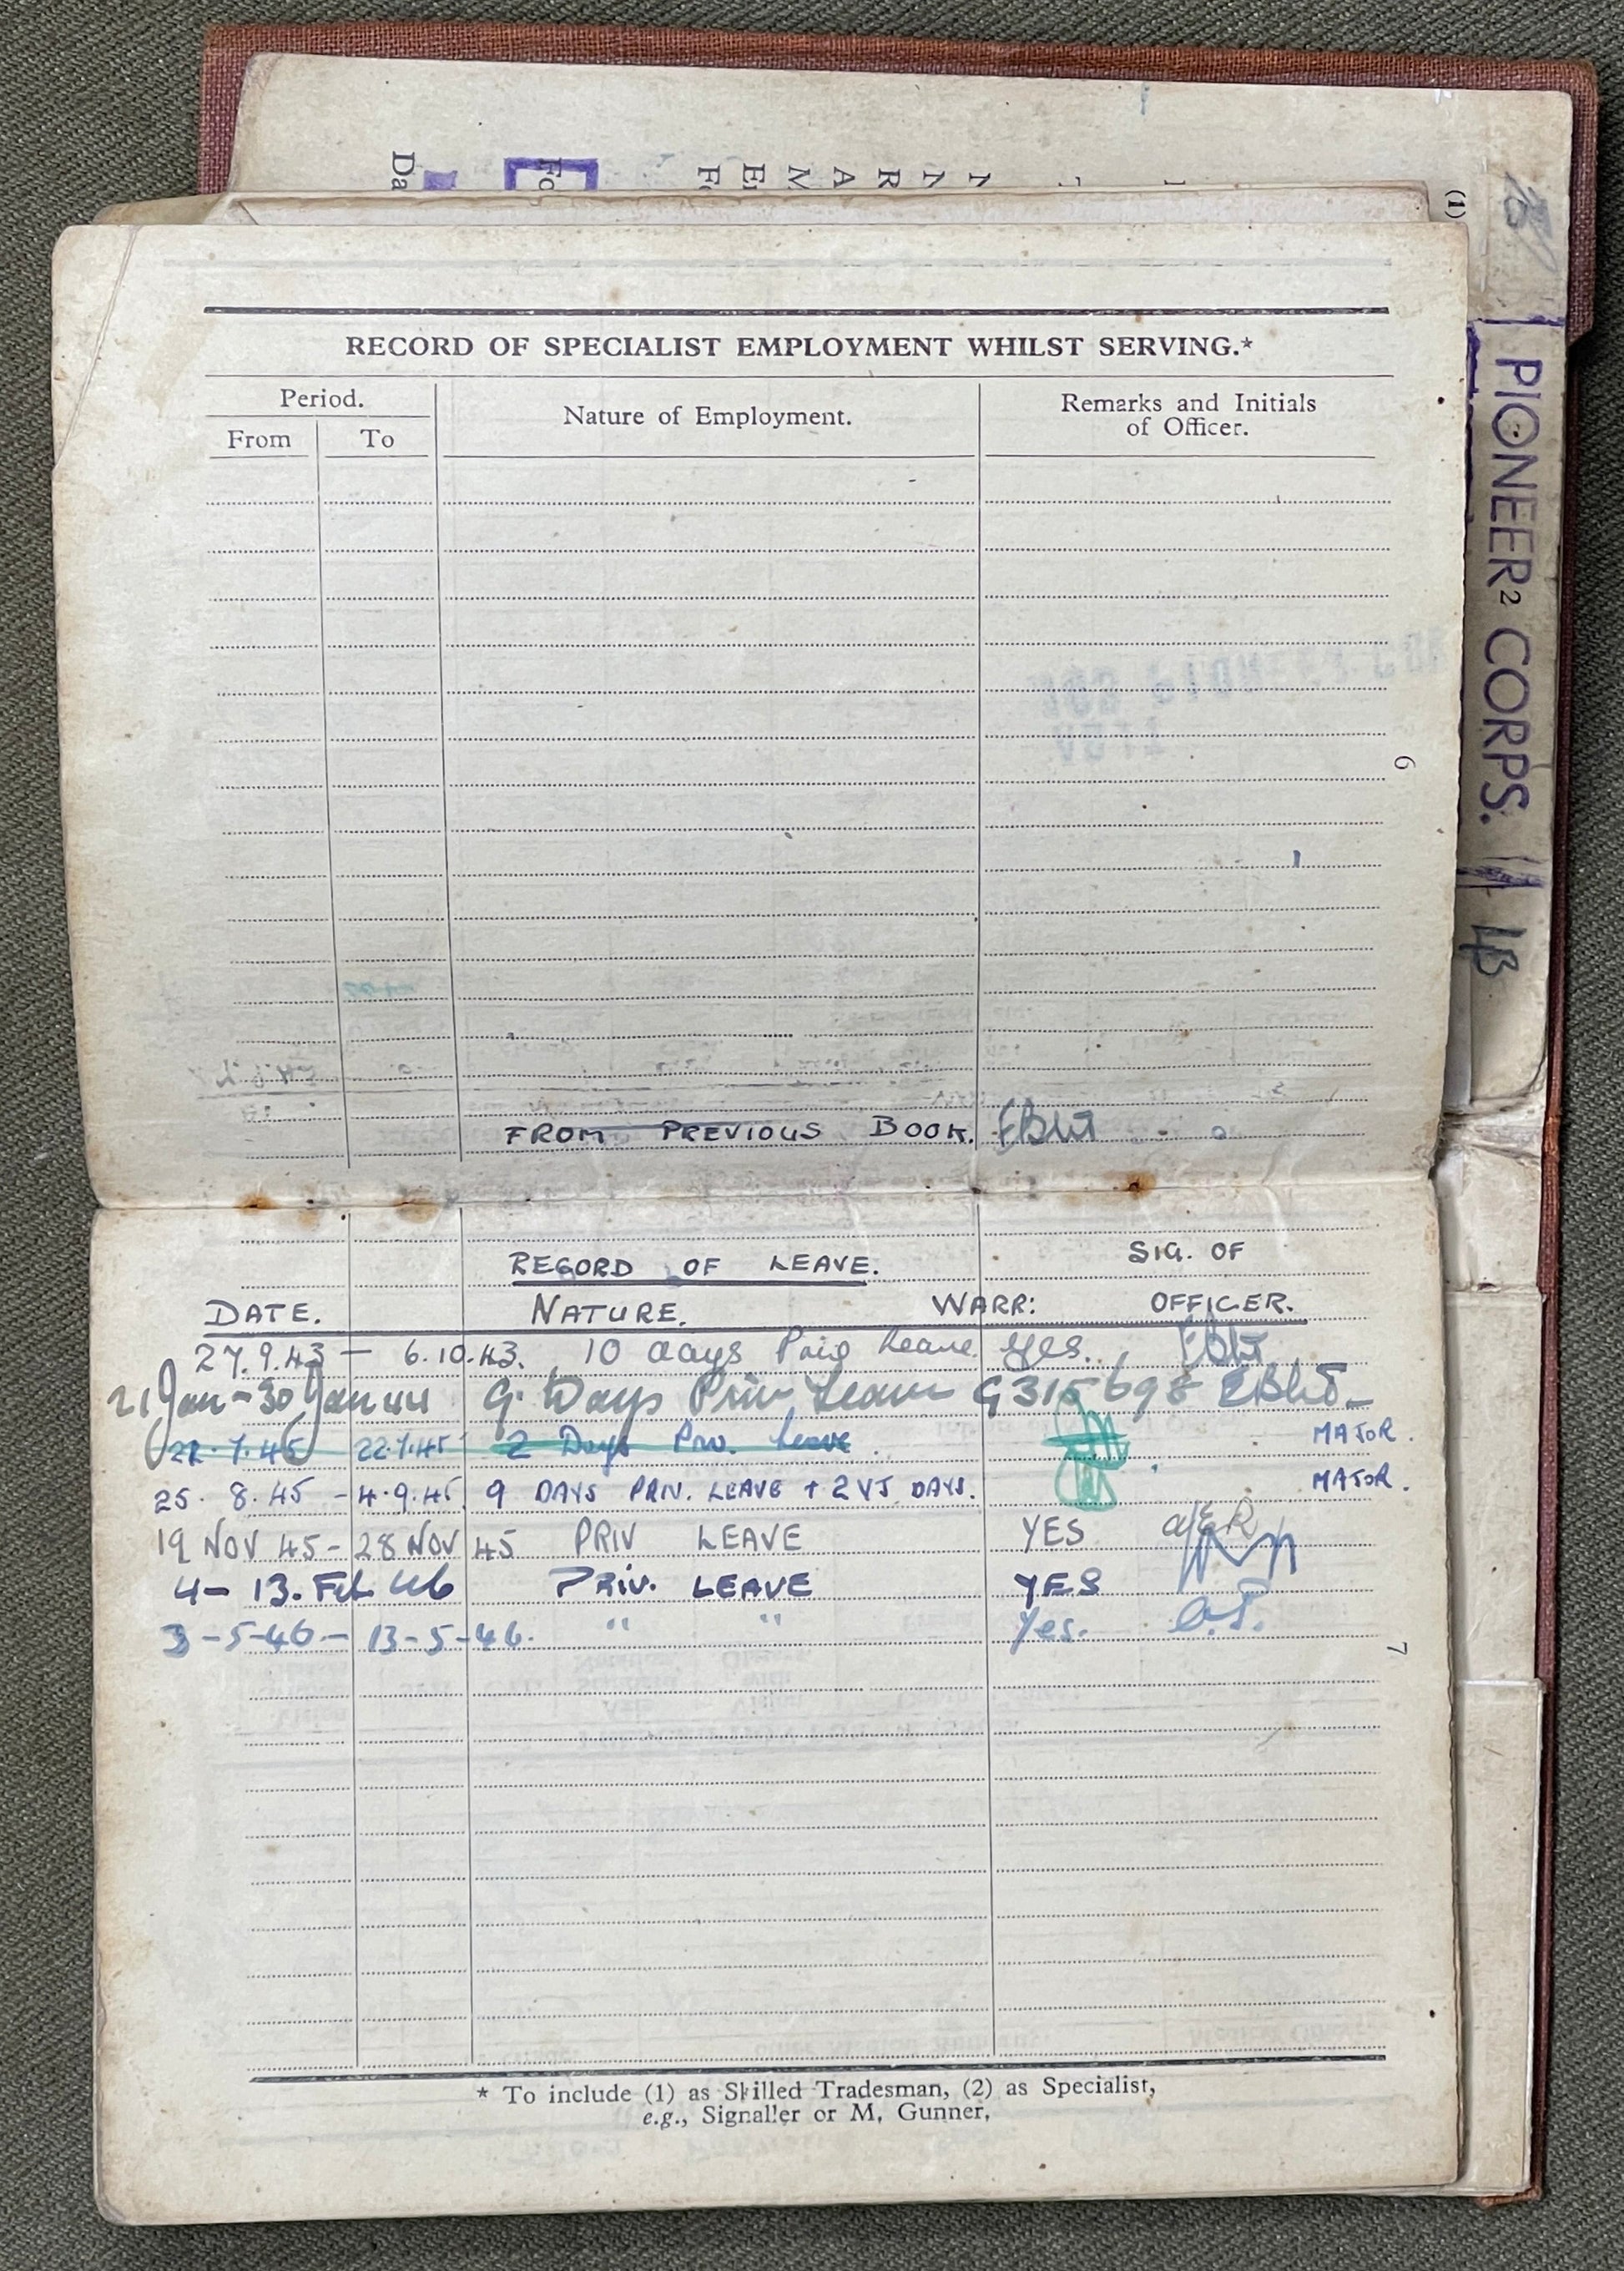 (1)
RECORD OF SPECIALIST EMPLOYMENT WHILST SERVING.*
Period.
From To
Nature of Employment.
Remarks and Initials
of Officer.
6
FROM PREVIOUS BOOK.
RECORD OF LEAVE. SIG. OF
DATE. NATURE. WARR: OFFICER.
27.9.43 — 6.10.43. 10 days Priv Leave Yes.
21 Jan - 30 Jan 44 9 Days Priv Leave G315698
22.7.45 2 Days Priv. Leave. MAJOR.
25. 8. 45 - 4.9.45. 9 DAYS PRIV. LEAVE + 2 VJ DAYS. MAJOR.
19 NOV 45 - 28 NOV 45 PRIV LEAVE YES
4 - 13. Feb 46 PRIV. LEAVE YES
3-5-46 - 13-5-46. " " Yes.
7
* To include (1) as Skilled Tradesman, (2) as Specialist,
e.g., Signaller or M. Gunner.
PIONEER CORPS.
2